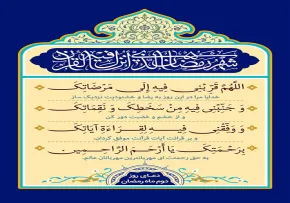 شهر رمضان الذی انزل فیه القرآن
اللَّهُمَّ قَرِّبْنِی فِیهِ إِلَى مَرْضَاتِکَ
خدایا مرا در این روز به رضا و خشنودیت نزدیک ساز
وَ جَنِّبْنِی فِیهِ مِنْ سَخَطِکَ وَ نَقِمَاتِکَ
و از خشم و غضبت دور کن
وَ وَفِّقْنِی فِیهِ لِقِرَاءَةِ آیَاتِکَ
و بر قرائت آیات قرآنت موفق گردان.
بِرَحْمَتِکَ یَا أَرْحَمَ الرَّاحِمِینَ
به حق رحمتت ای مهربانترین مهربانان عالم.
دعای روز
دوم ماه رمضان